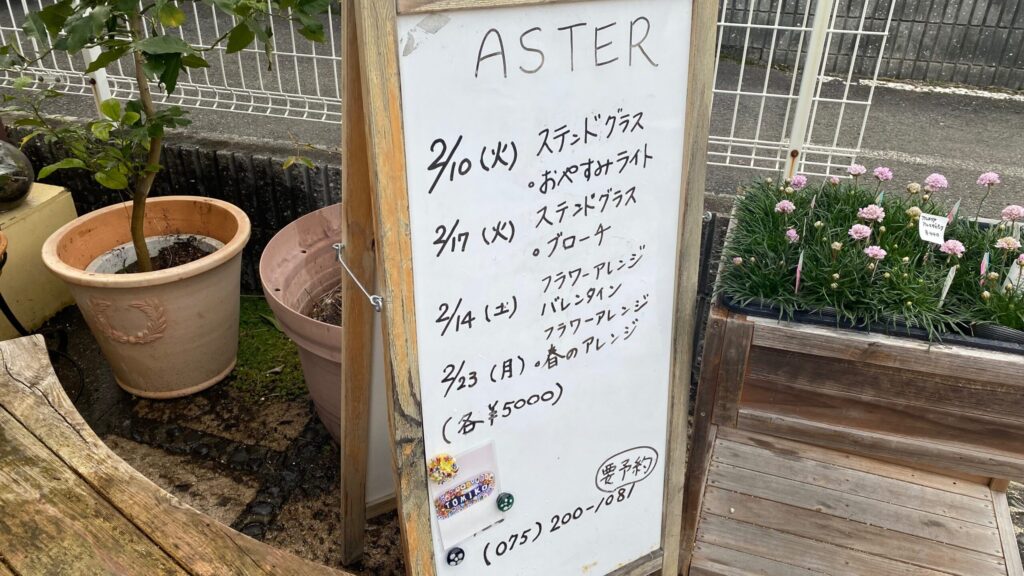 ASTER
2/10(火) ステンドグラス
。おやすみライト
2/17(火) ステンドグラス
。ブローチ
フラワーアレンジ
2/14(土) バレンタイン
フラワーアレンジ
2/23(月)。春のアレンジ
(各¥5000)
要予約
(075)200-1081